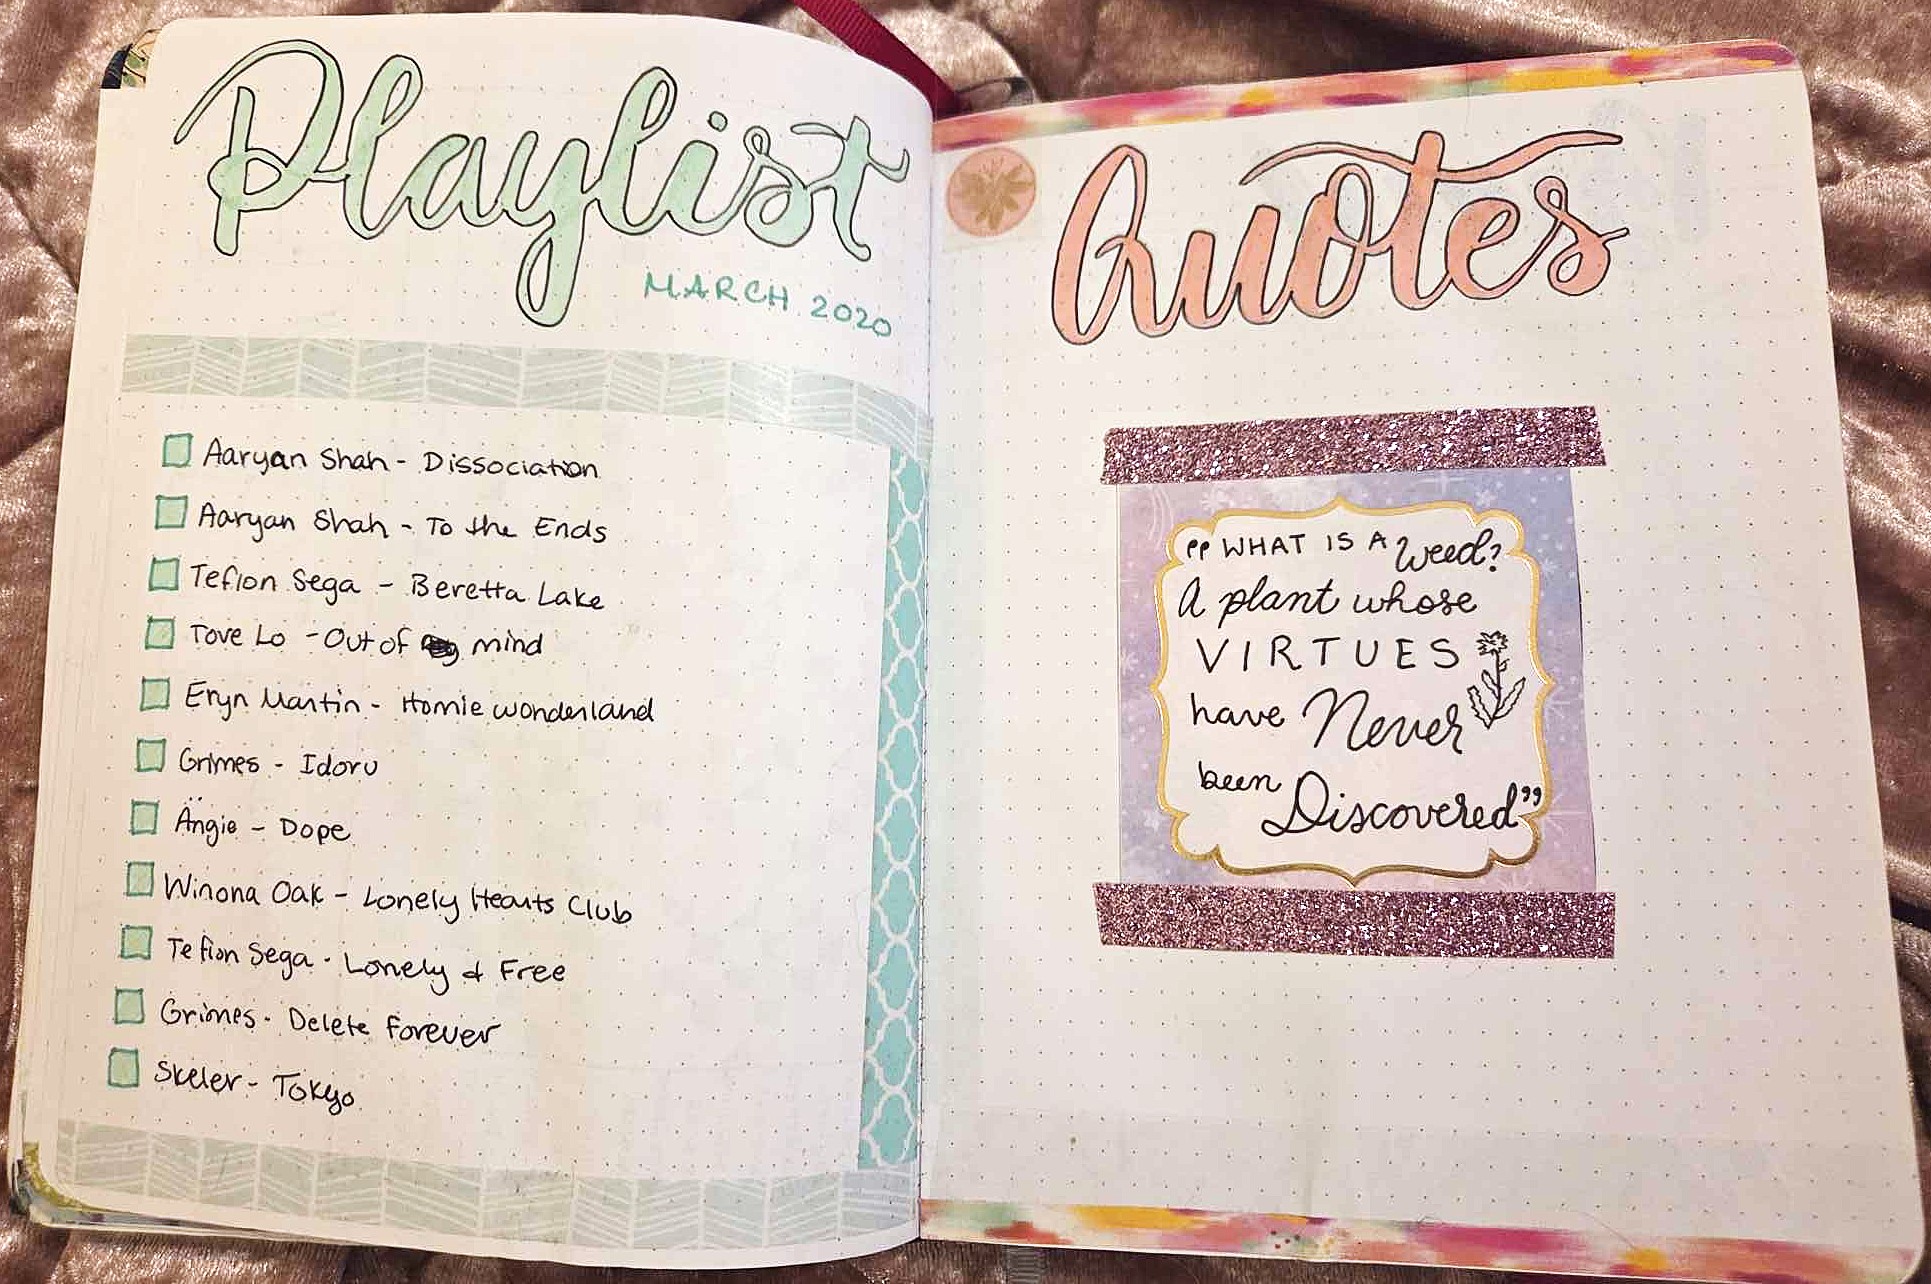 Playlist
MARCH 2020
Aaryan Shah - Dissociation
Aaryan Shah - To the Ends
Teflon Sega - Beretta Lake
Tove Lo - Out of mind
Eryn Martin - Homie wonderland
Grimes - Idoru
Ängie - Dope
Winona Oak - Lonely Hearts Club
Teflon Sega - Lonely & Free
Grimes - Delete Forever
Skeler - Tokyo
Quotes
"WHAT IS A Weed?
A plant whose
VIRTUES
have Never
been
Discovered"